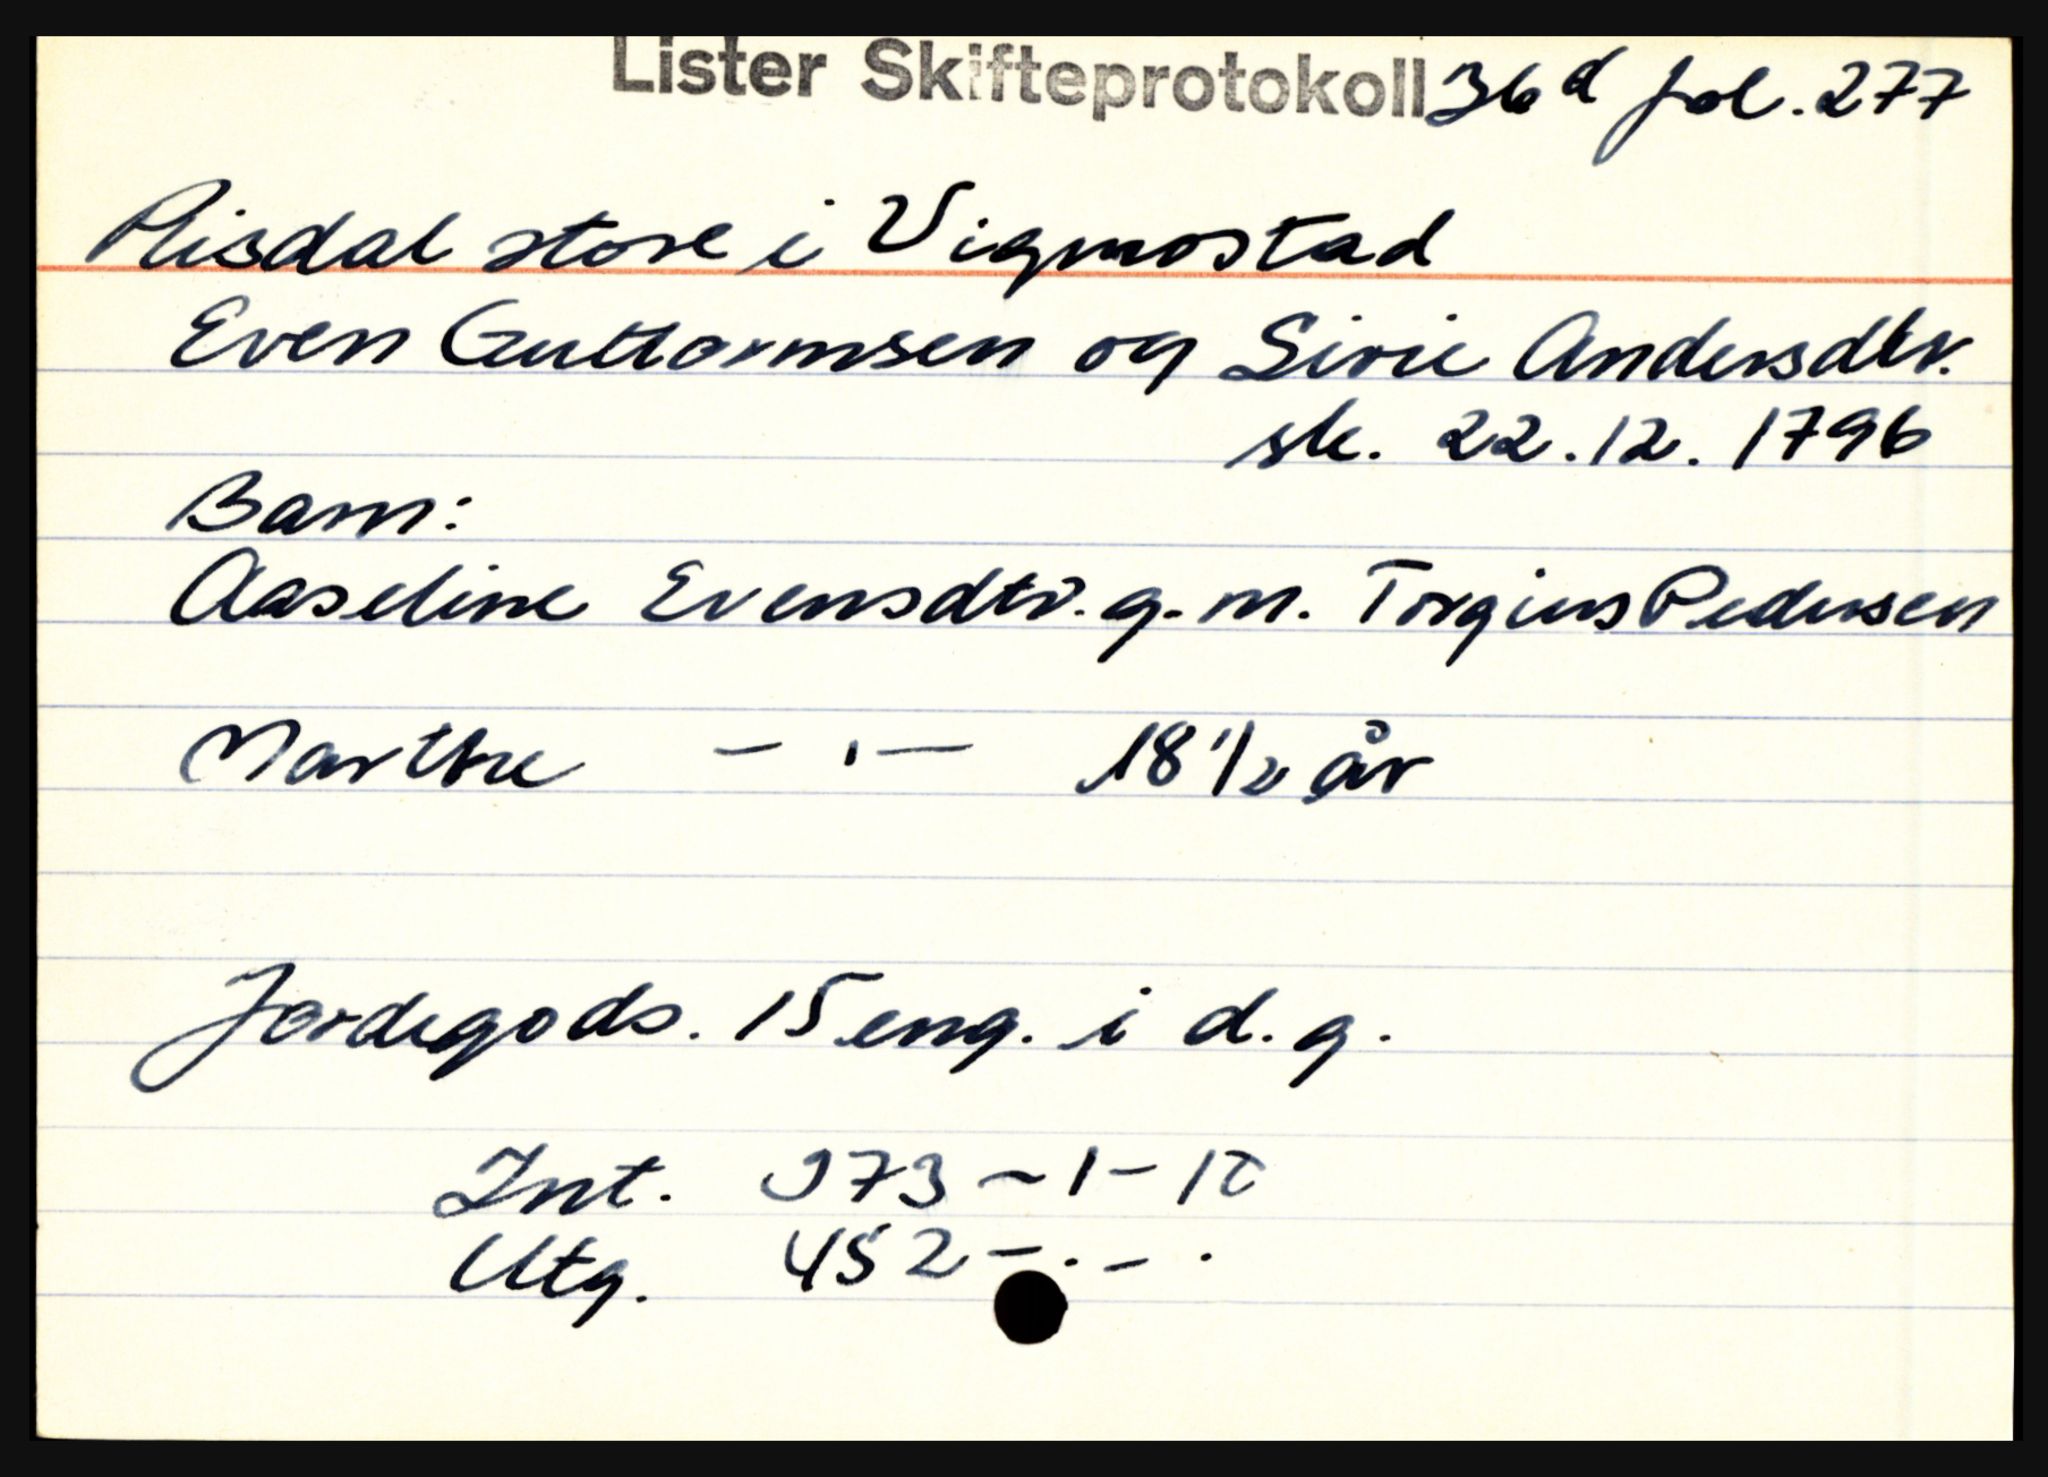 Lister Skifteprotokoll 36d fol. 277
Risdal store i Vigmostad
Even Guttormsen og Sirie Andersdtr.
sk. 22.12.1796
Barn:
Aaseline Evensdtr. g. m. Torgius Pedersen
Marthe — . — 18 1/2 år
Jordegods. 15 eng. i d. g.
Int. 973 - 1 - 10
Utg. 452 - . - .